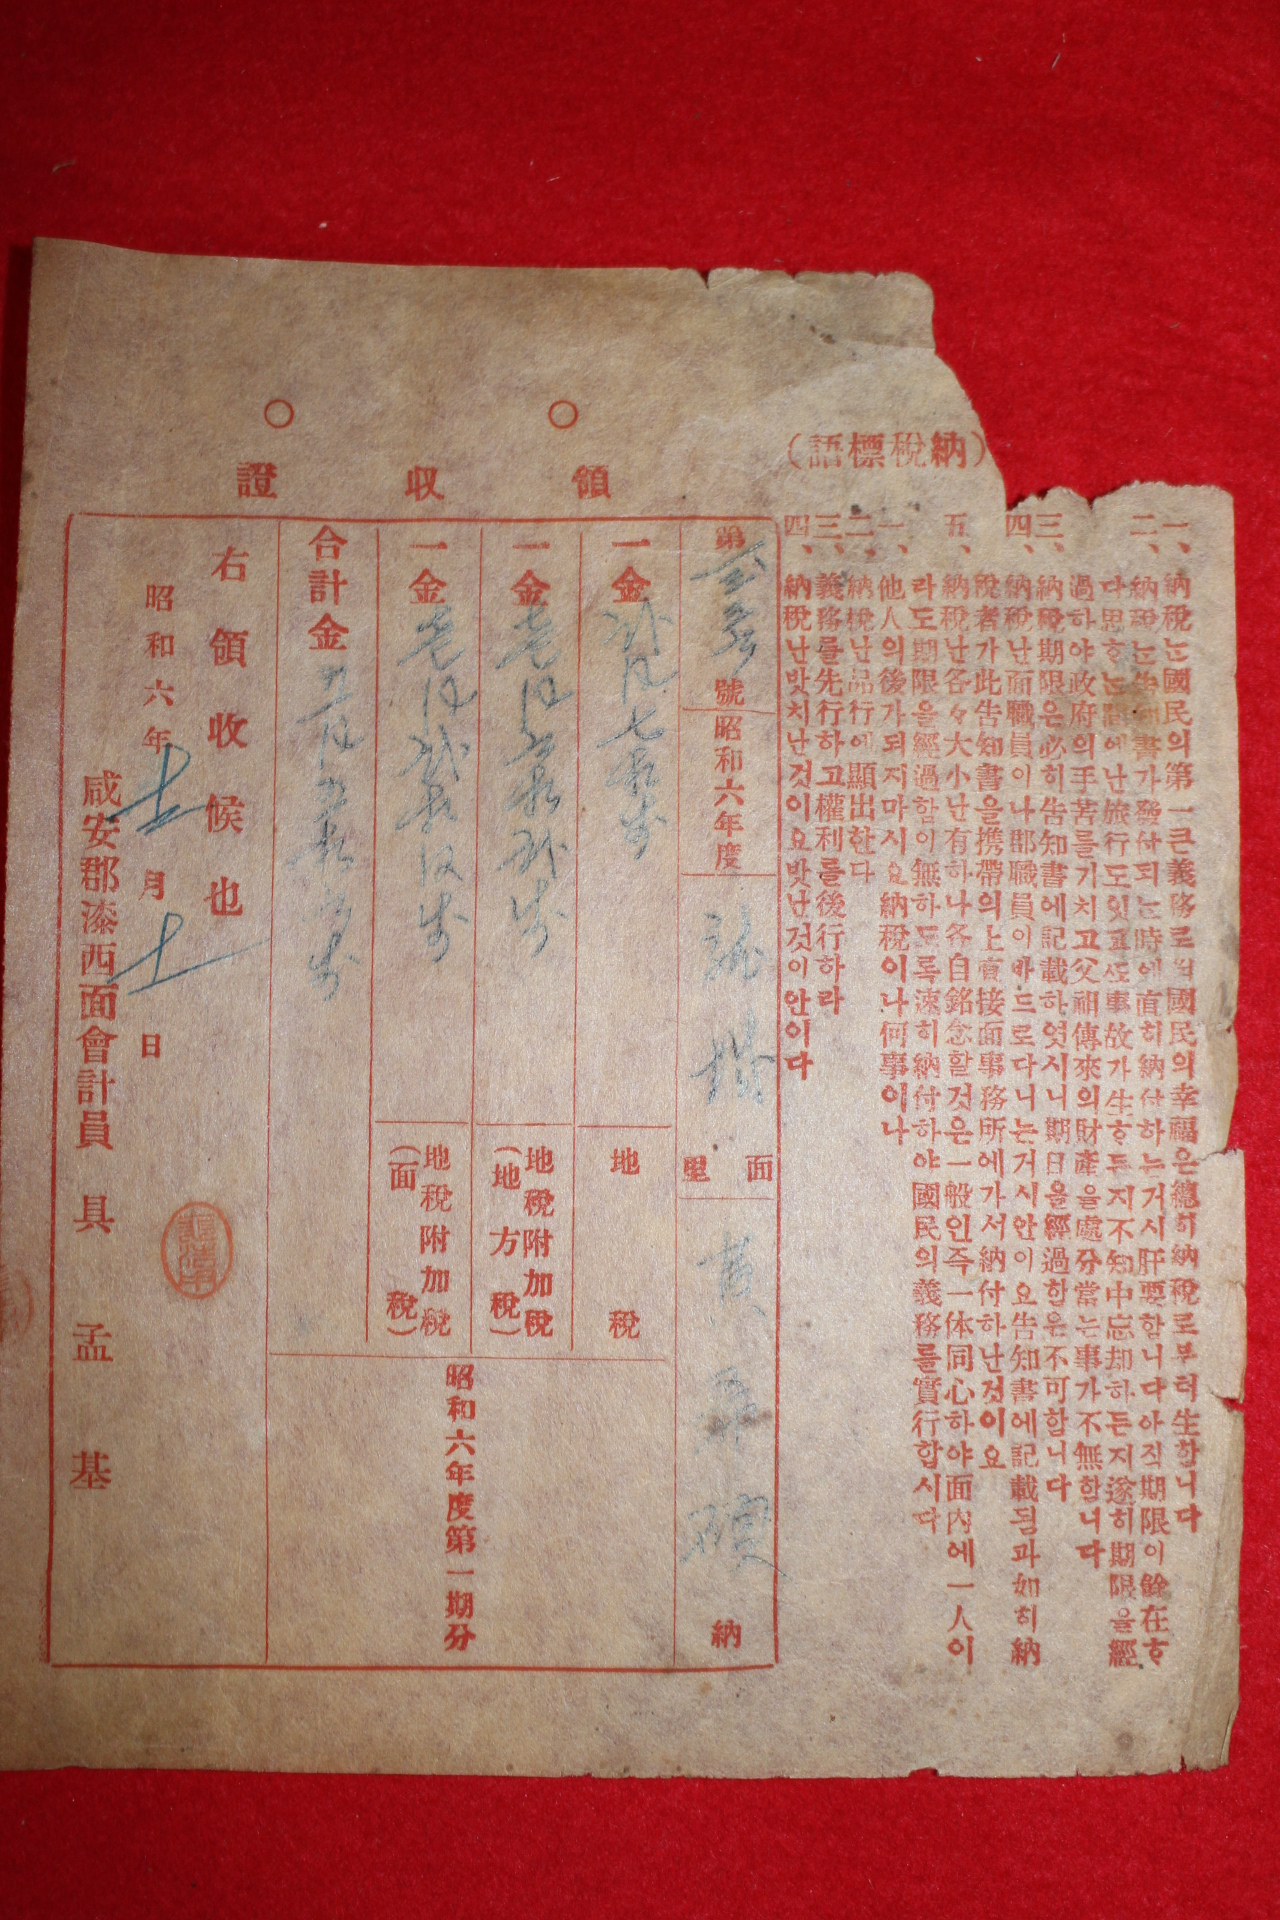 (納稅標語)
一、納稅는國民의第一큰義務로서國民의幸福은總히納稅로부터生합니다
二、納稅는告知書가發付되는時에直히納付하는거시肝要합니다아직期限이餘在ᄒ
다思ᄒ는間에난旅行도잇고또事故가生ᄒ든지不知中忘却하든지遂히期限을經
過하야政府의手苦를기치고父祖傳來의財產을處分當는事가不無합니다
三、納稅期限은必히告知書에記載하엿시니期日을經過함은不可합니다
四、納稅난面職員이나郡職員이바드로다니는거시안이요告知書에記載됨과如히納
稅者가此告知書을携帶의上直接面事務所에가서納付하난것이요
五、納稅난各々大小난有하나各自銘念할것은一般人즉一体同心하야面內에一人이
라도期限을經過함이無하도록速히納付하야國民의義務를實行합시다
一、他人의後가되지마시요納稅이나何事이나
二、納稅난品行에顯出한다
三、義務를先行하고權利를後行하라
四、納稅난맛치난것이요밧난것이안이다
領收證
第 號 昭和六年度 面 里 納
一金 地稅
一金 地稅附加稅(地方稅)
一金 地稅附加稅(面稅)
合計金
昭和六年度第一期分
右領收候也
昭和六年 十二 月 十一 日
咸安郡漆西面會計員 具孟基